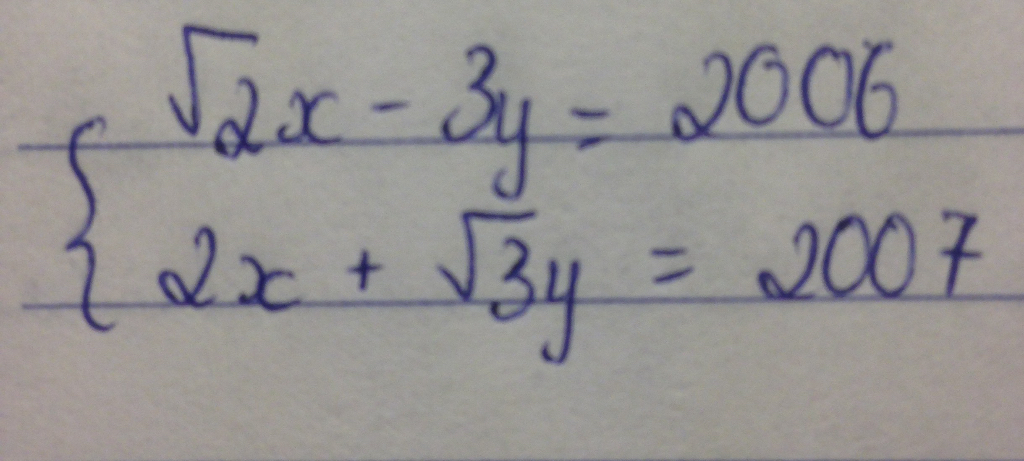 √2x - 3y = 2006
2x + √3y = 2007